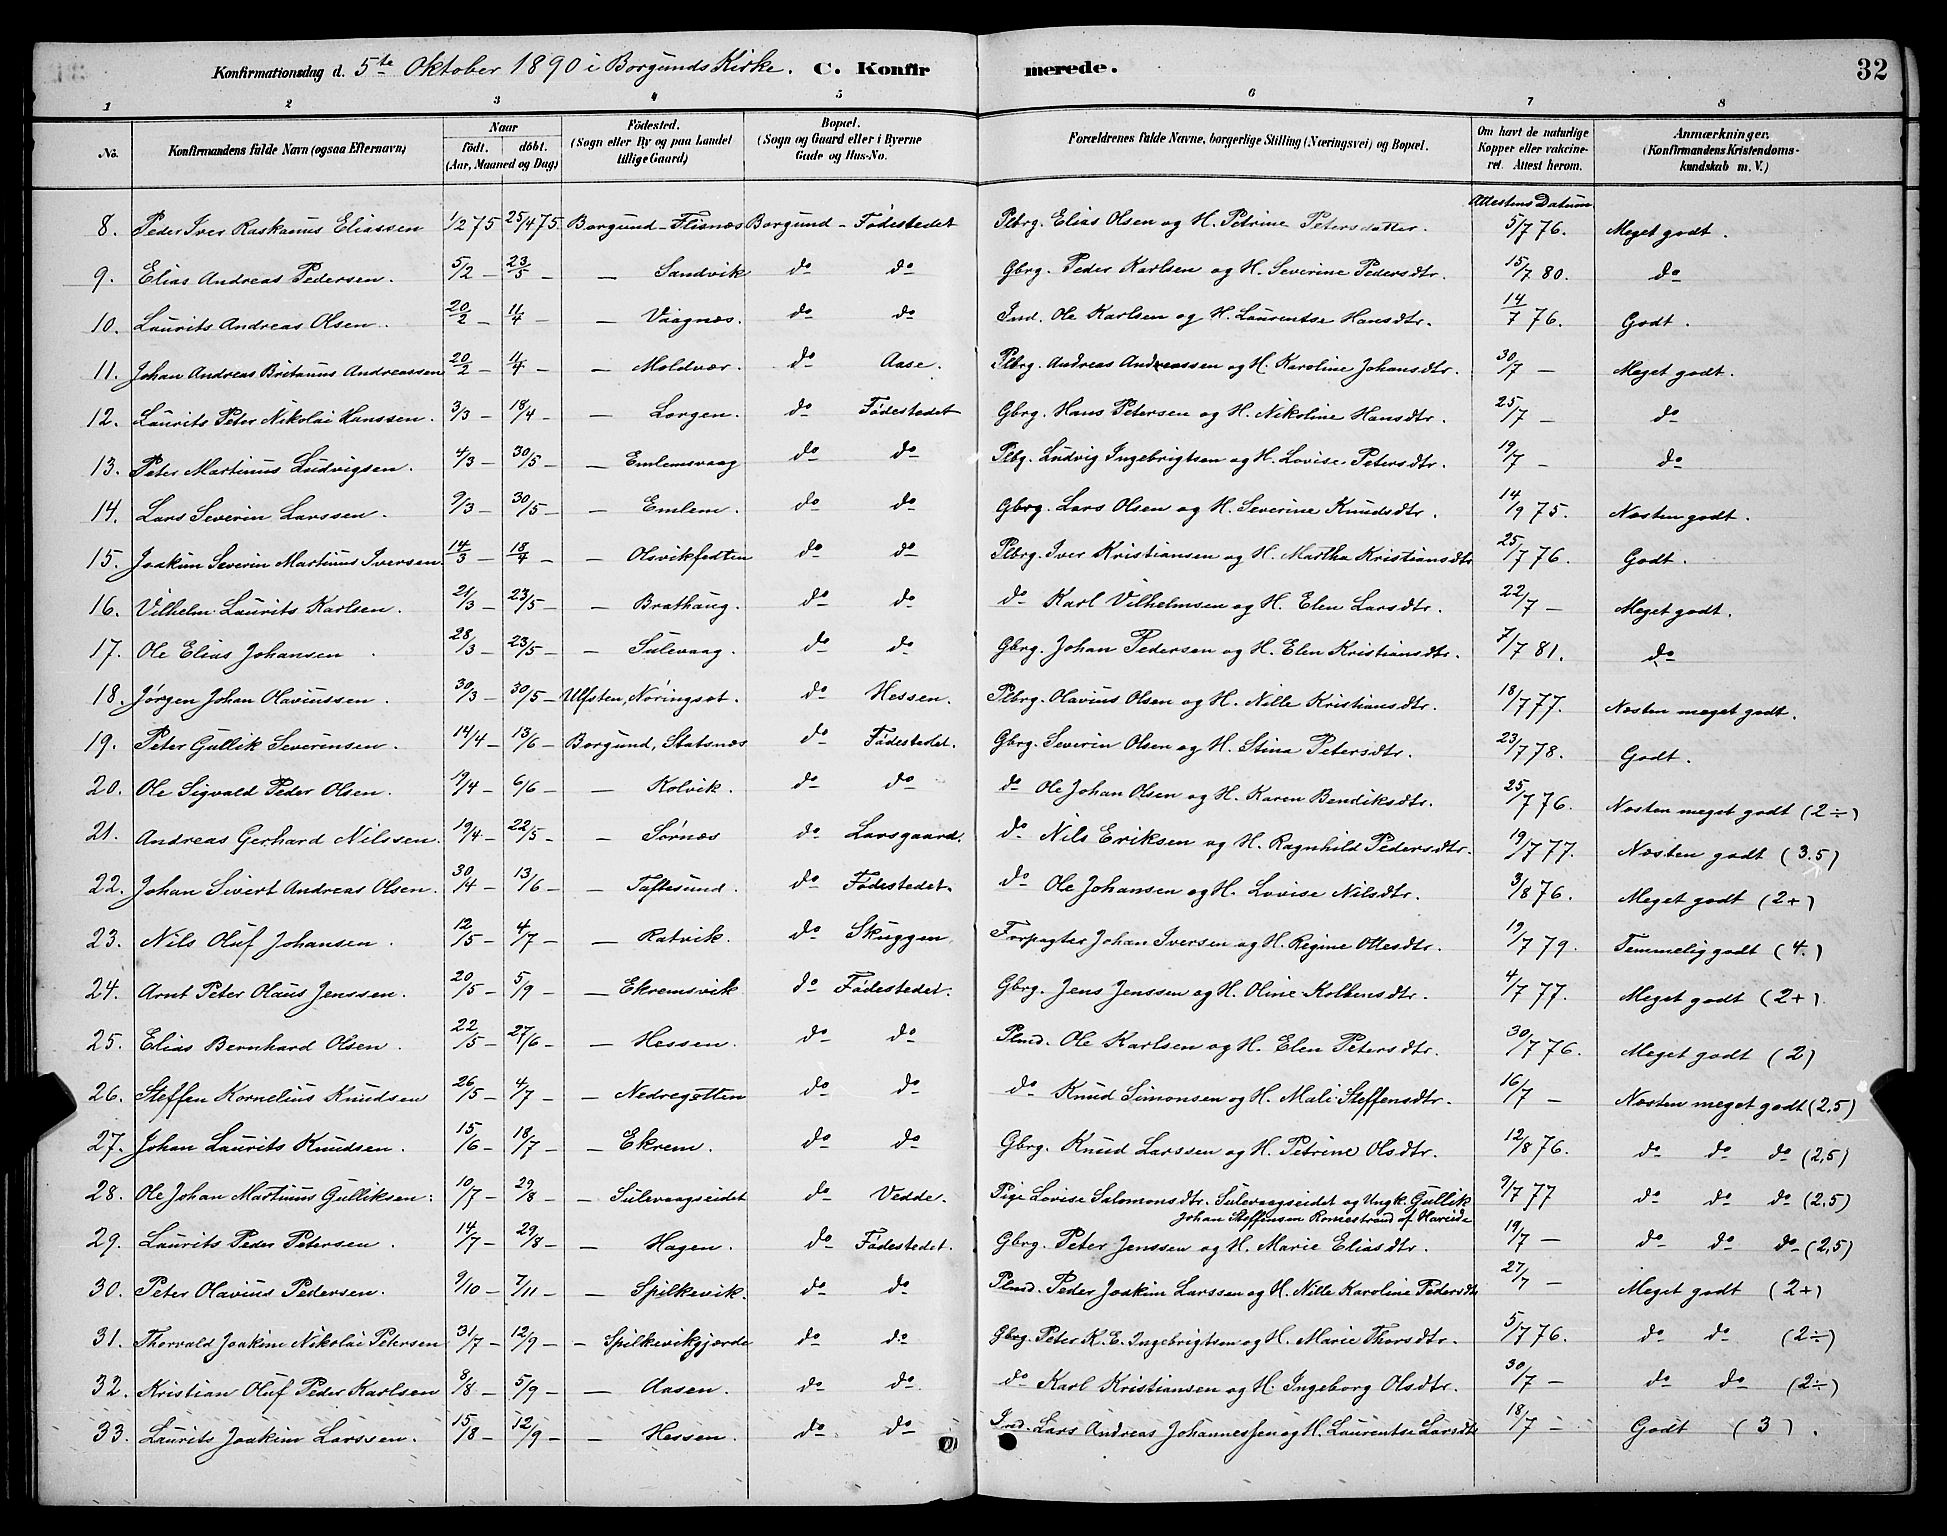 Konfirmationsdag d. 5te Oktober 1890 i Borgunds Kirke. C. Konfirmerede. 32
1 2 3 4 5 6 7 8
No. Konfirmandens fulde Navn (ogsaa Efternavn) Naar födt. döbt. (Aar, Maaned og Dag) Födested. (Sogn eller By og paa Landet tillige Gaard) Bopæl. (Sogn og Gaard eller i Byerne Gade og Hus-No. Forældrenes fulde Navne, borgerlige Stilling (Næringsvei) og Bopæl. Om havt de naturlige Kopper eller vakcineret. Attest herom. Anmærkninger. (Konfirmandens Kristendomskundskab m. V.)
Attestens Datum
8. Peder Iver Raskanus Eliassen 1/2 75 25/4 75. Borgund - Flisnæs Borgund - Födestedet Plbrg. Elias Olsen og H. Petrine Petersdatter. 5/7 76. Meget godt.
9. Elias Andreas Pedersen. 5/2 — 23/5 — — Sandvik do do Gbrg. Peder Karlsen og H. Severine Pedersdtr. 15/7 80. do
10. Laurits Andreas Olsen. 20/2 — 11/4 — — Vaagnæs. do do Ind. Ole Karlsen og H. Laurentse Hansdtr. 14/7 76. Godt.
11. Johan Andreas Britanus Andreassen 20/2 — 11/4 — — Moldvær. do Aase. Plbrg. Andreas Andreassen og H. Karoline Johansdtr. 30/7 — Meget godt.
12. Laurits Peter Nikolai Hanssen. 3/3 — 18/4 — — Lorgen. do Födestedet Gbrg. Hans Petersen og H. Nikoline Hansdtr. 25/7 — do
13. Peter Martinus Ludvigsen. 4/3 — 30/5 — — Emlemsvaag do do Plbg. Ludvig Ingebrigtsen og H. Lovise Petersdtr. 19/7 — do
14. Lars Severin Larssen. 9/3 — 30/5 — — Emlem. do do Gbrg. Lars Olsen og H. Severine Knudsdtr. 14/9 75. Næsten godt.
15. Joakim Severin Martinus Iversen. 14/3 — 18/4 — — Olsvikfedten do do Plbrg. Iver Kristiansen og H. Martha Kristiansdtr 25/7 76. Godt.
16. Vilhelm Laurits Karlsen. 21/3 — 23/5 — — Brathaug. do do do Karl Vilhelmsen og H. Elen Larsdtr. 22/7 — Meget godt.
17. Ole Elias Johansen 28/3 — 23/5 — — Sulevaag. do do Gbrg. Johan Pedersen og H. Elen Kristiansdtr. 7/7 81. do
18. Jørgen Johan Olavinssen. 30/3 — 30/5 — Ulfsten, Nöringset. do Hessen. Plbrg. Olavius Olsen og H. Nille Kristiansdtr. 18/7 77. Næsten meget godt.
19. Peter Gullik Severinsen. 14/4 — 13/6 — Borgund, Statsnæs do Födestedet. Gbrg. Severin Olsen og H. Stina Petersdtr. 23/7 78. Godt.
20. Ole Sigvald Peder Olsen. 19/4 — 6/6 — — Kolvik. do do do Ole Johan Olsen og H. Karen Bendiksdtr. 25/7 76. Næsten meget godt (2÷)
21. Andreas Gerhard Nilssen. 19/4 — 22/5 — — Sörnæs do Larsgaard. do Nils Eriksen og H. Ragnhild Pedersdtr. 19/7 77. Næsten godt (3.5)
22. Johan Sivert Andreas Olsen. 30/14 — 13/6 — — Taftesund. do Födestedet. do Ole Johansen og H. Lovise Nilsdtr. 3/8 76. Meget godt (2+)
23. Nils Oluf Johansen. 12/5 — 4/7 — — Ratvik. do Skuggen Forpagter Johan Iversen og H. Regine Ottesdtr. 19/7 79. Temmelig godt (4.)
24. Arnt Peter Olaus Jenssen. 20/5 — 5/9 — — Ekremsvik do Födestedet. Gbrg. Jens Jenssen og H. Oline Kolbensdtr. 4/7 77. Meget godt (2+).
25. Elias Bernhard Olsen. 22/5 — 27/6 — — Hessen. do do Plmd. Ole Karlsen og H. Elen Petersdtr. 30/7 76. Meget godt (2)
26. Steffen Kornelius Knudsen 26/5 — 4/7 — — Nedregotten do do do Knud Simonsen og H. Mali Steffensdtr. 16/7 — Næsten meget godt (2,5)
27. Johan Laurits Knudsen. 15/6 — 18/7 — — Ekrem. do do Gbrg. Knud Larssen og H. Petrine Olsdtr. 12/8 76. do do do (2,5)
28. Ole Johan Martinus Gulliksen. 10/7 — 29/8 — — Sulevaagseidet do Vedde. Pige Lovise Salomonsdtr. Sulevaagseidet og Ungk. Gullik 9/7 77 do do do (2,5)
Johan Steffensen Romestrand af Hareide
29. Laurits Peder Petersen. 14/7 — 29/8 — — Hagen. do Födestedet. Gbrg. Peter Jenssen og H. Marie Eliasdtr. 19/7 — do do do (2,5)
30. Peter Olavius Pedersen. 9/10 — 7/11 — — Spilkevik. do do Plmd. Peder Joakim Larssen og H. Nille Karoline Pedersdtr 27/7 — Meget godt (2+)
31. Thorvald Joakim Nikolai Petersen 31/7 — 12/9 — — Spilkevikgjærde do do Gbrg. Peter K. E. Ingebrigtsen og H. Marie Thorsdtr. 5/7 76. do do (2÷)
32. Kristian Oluf Peder Karlsen 8/8 — 5/9 — — Aasen. do do do Karl Kristiansen og H. Ingeborg Olsdtr. 30/7 — do do (2÷)
33. Laurits Joakim Larssen. 15/8 — 12/9 — — Hessen. do do Ind. Lars Andreas Johannessen og H. Laurentse Larsdtr 18/7 — Godt (3).